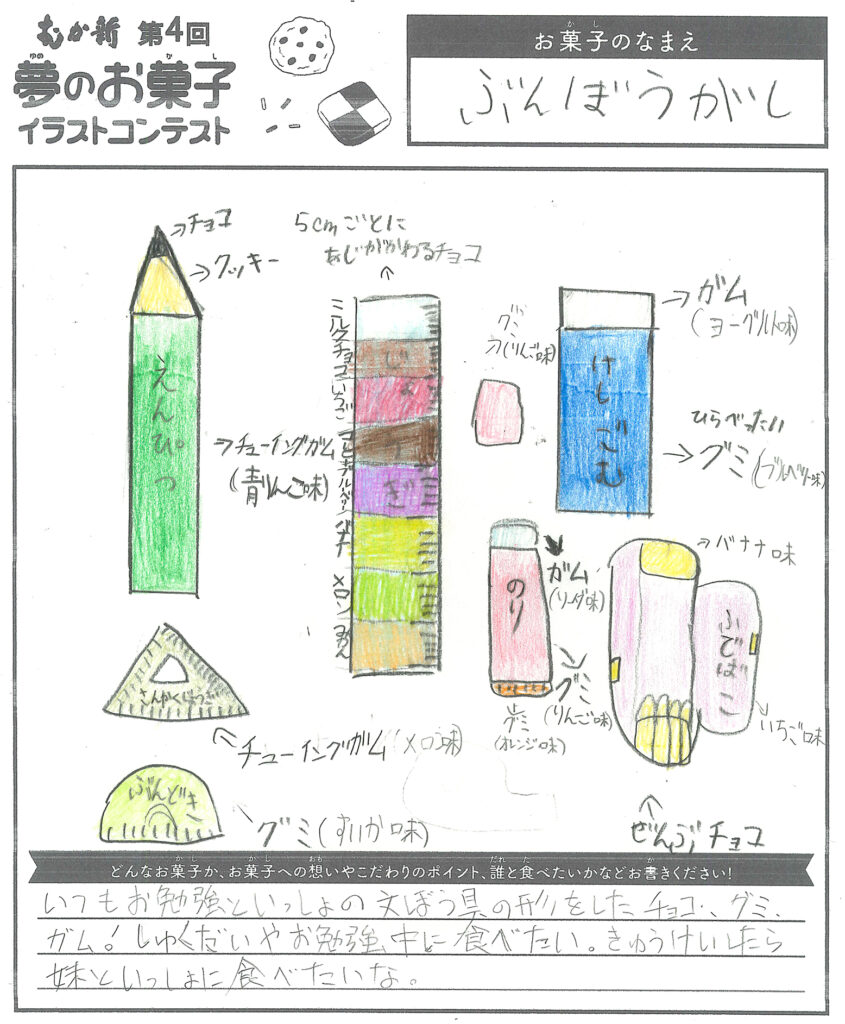 むか新 第4回
夢のお菓子
イラストコンテスト
お菓子のなまえ
ぶんぼうがし
→チョコ
→クッキー
えんぴつ
→チューイングガム
(青りんご味)
5cmごとに
あじがかわるチョコ
ミルクチョコ
いちご
ブルーベリー
バナナ
メロン
みかん
じ
ょ
う
ぎ
グミ
(りんご味)
→ガム
(ヨーグルト味)
けしごむ
ひらべったい
→グミ(ブルーベリー味)
のり
ガム
(ソーダ味)
グミ
(りんご味)
グミ
(オレンジ味)
→バナナ味
ふでばこ
いちご味
ぜんぶチョコ
さんかくじょうぎ
チューイングガム(メロン味)
ぶんどき
グミ(すいか味)
どんなお菓子か、お菓子への想いやこだわりのポイント、誰と食べたいかなどお書きください!
いつもお勉強といっしょの文ぼう具の形をしたチョコ、グミ、
ガム!しゅくだいやお勉強中に食べたい。きゅうけいしたら
妹といっしょに食べたいな。